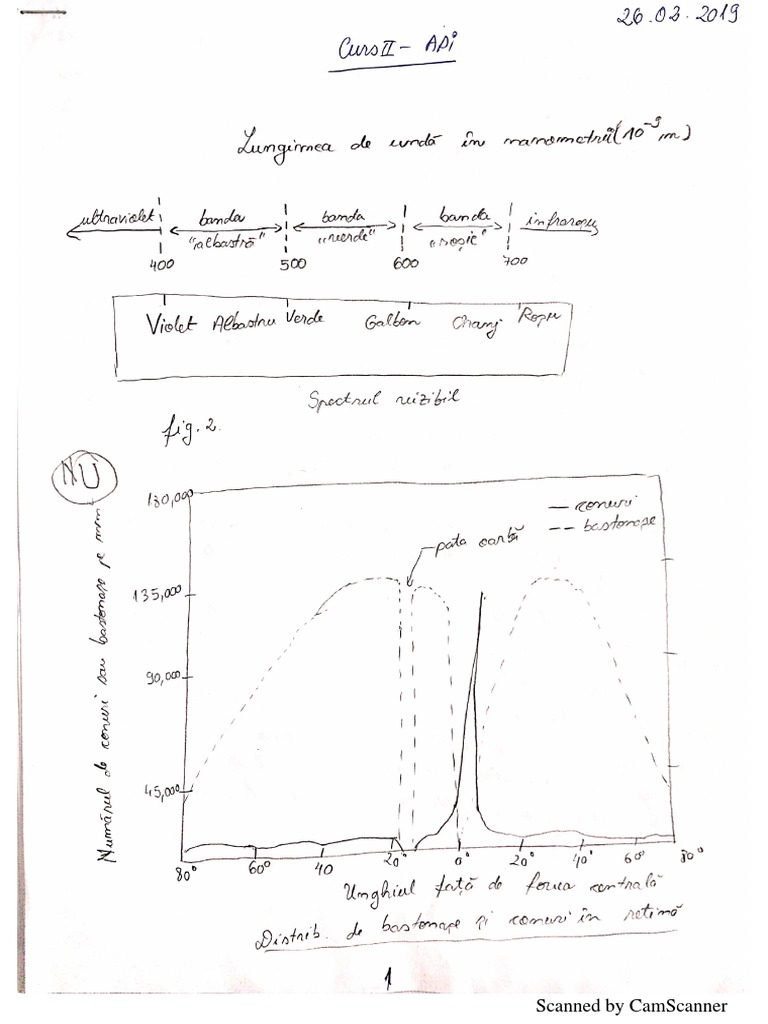 26.03.2019
Curs II - APi
Lungimea de undă în nanometrii (10⁻⁹ m)
ultraviolet banda banda banda infraroșu
"albastră" "verde" "roșie"
400 500 600 700
Violet Albastru Verde Galben Oranj Roșu
Spectrul vizibil
fig. 2.
NU
180,000
— conuri
-- bastonașe
pata oarbă
135,000
90,000
45,000
Numărul de conuri sau bastonașe pe mm
80° 60° 40 20° 0° 20° 40° 60° 80°
Unghiul față de fovea centrală
Distrib. de bastonașe și conuri în retină
1
Scanned by CamScanner